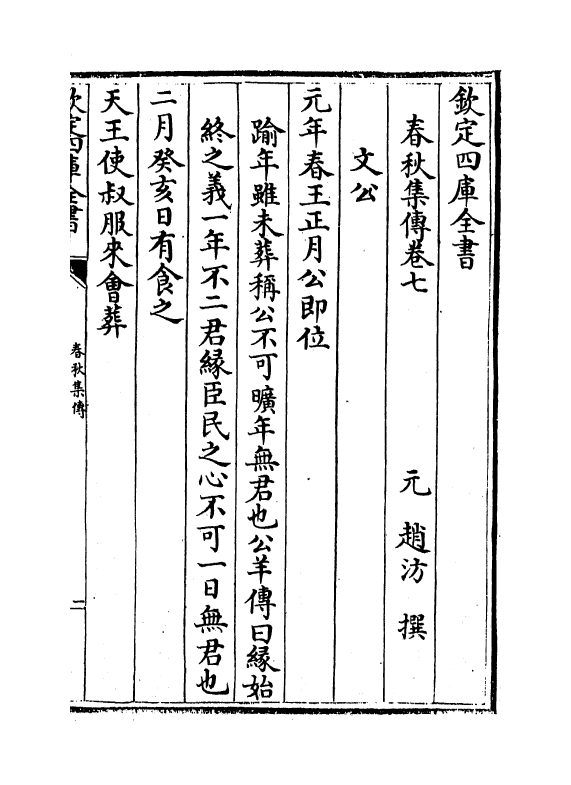 欽定四庫全書
春秋集傳卷七
元 趙汸 撰
文公
元年春王正月公即位
踰年雖未葬稱公不可曠年無君也公羊傳曰緣始
終之義一年不二君緣臣民之心不可一日無君也
二月癸亥日有食之
天王使叔服來會葬
欽定四庫全書
春秋集傳